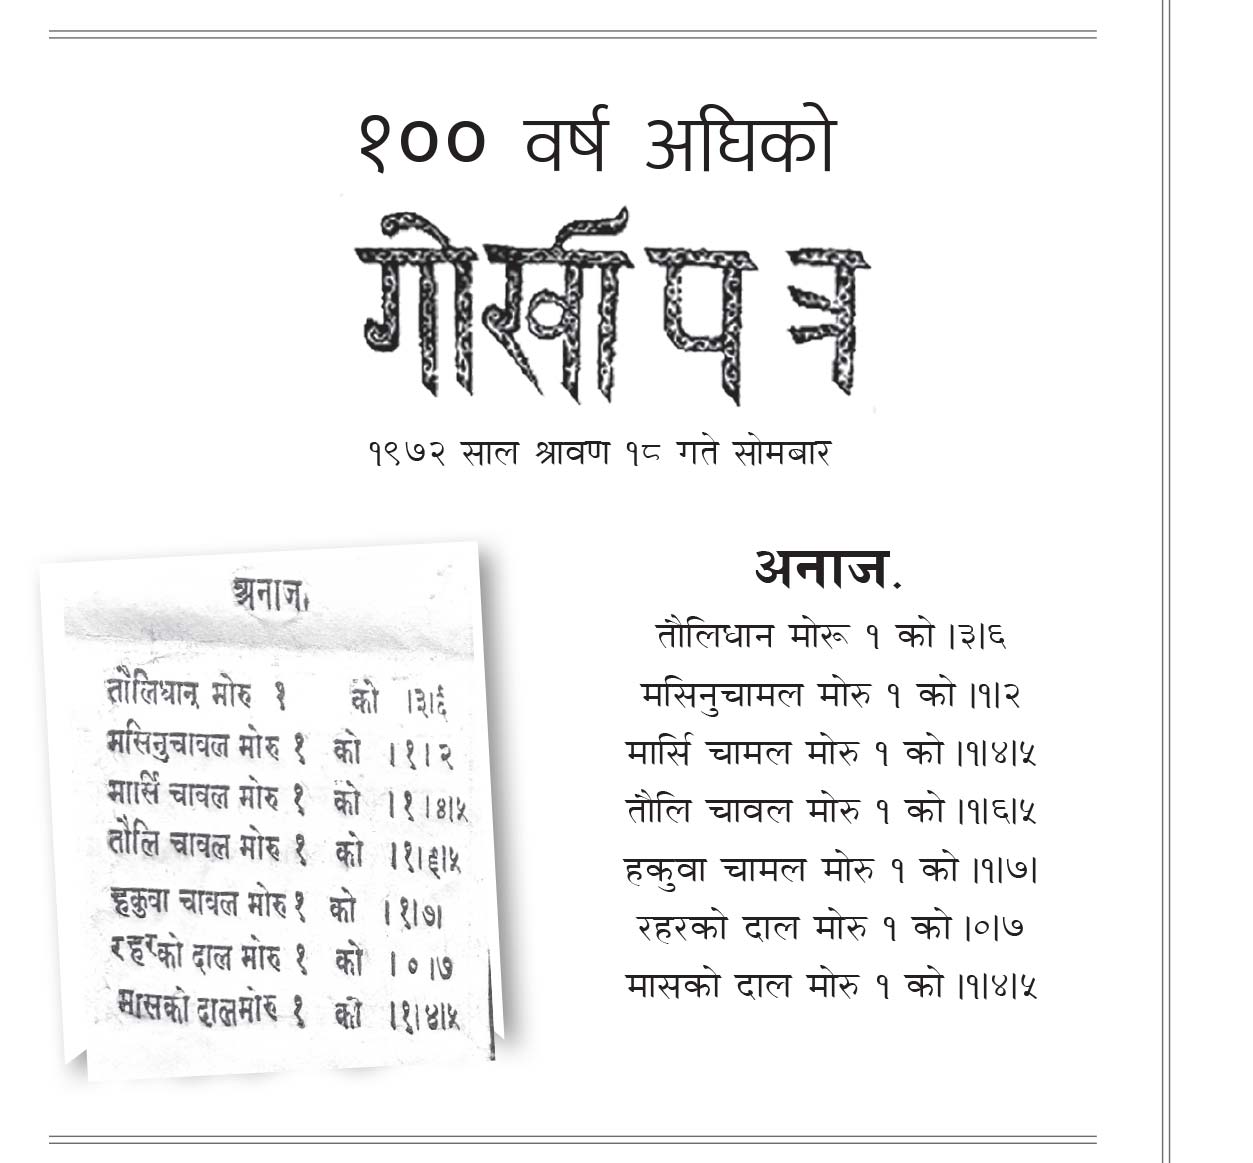 १०० वर्ष अघिको
गोर्खापत्र
१९७२ साल श्रावण १८ गते सोमबार
अनाज.
तौलिधान् मोरु १ को ।३।६
मसिनुचावल मोरु १ को ।१।२
मार्सि चावल मोरु १ को ।१।४।५
तौलि चावल मोरु १ को ।१।६।५
हकुवा चावल मोरु १ को ।१।७।
रहरको दाल मोरु १ को ।०।७
मासको दालमोरु १ को ।१।४।५
अनाज.
तौलिधान मोरू १ को ।३।६
मसिनुचामल मोरु १ को ।१।२
मार्सि चामल मोरु १ को ।१।४।५
तौलि चावल मोरु १ को ।१।६।५
हकुवा चामल मोरु १ को ।१।७।
रहरको दाल मोरु १ को ।०।७
मासको दाल मोरु १ को ।१।४।५